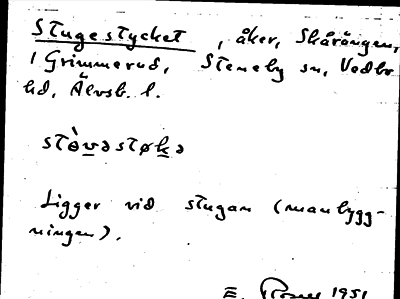 Stugestycket, åker, Skårången,
1 Grimmerud, Steneby sn, Vedbo
hd, Älvsb. l.
stòvəstøkə
Ligger vid stugan (manbygg-
ningen).
E. 1951